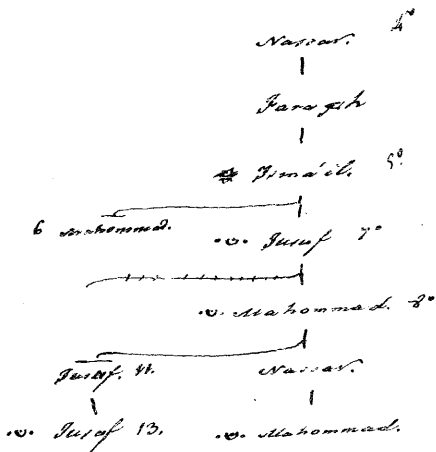 Nassar. 4º
Faragh
Ismá'il. 5º.
6 Mohommad.
Jusuf 7º
Mahommad. 8º
Jusuf. 11. Nassar.
Jusuf 13. Mahommad.